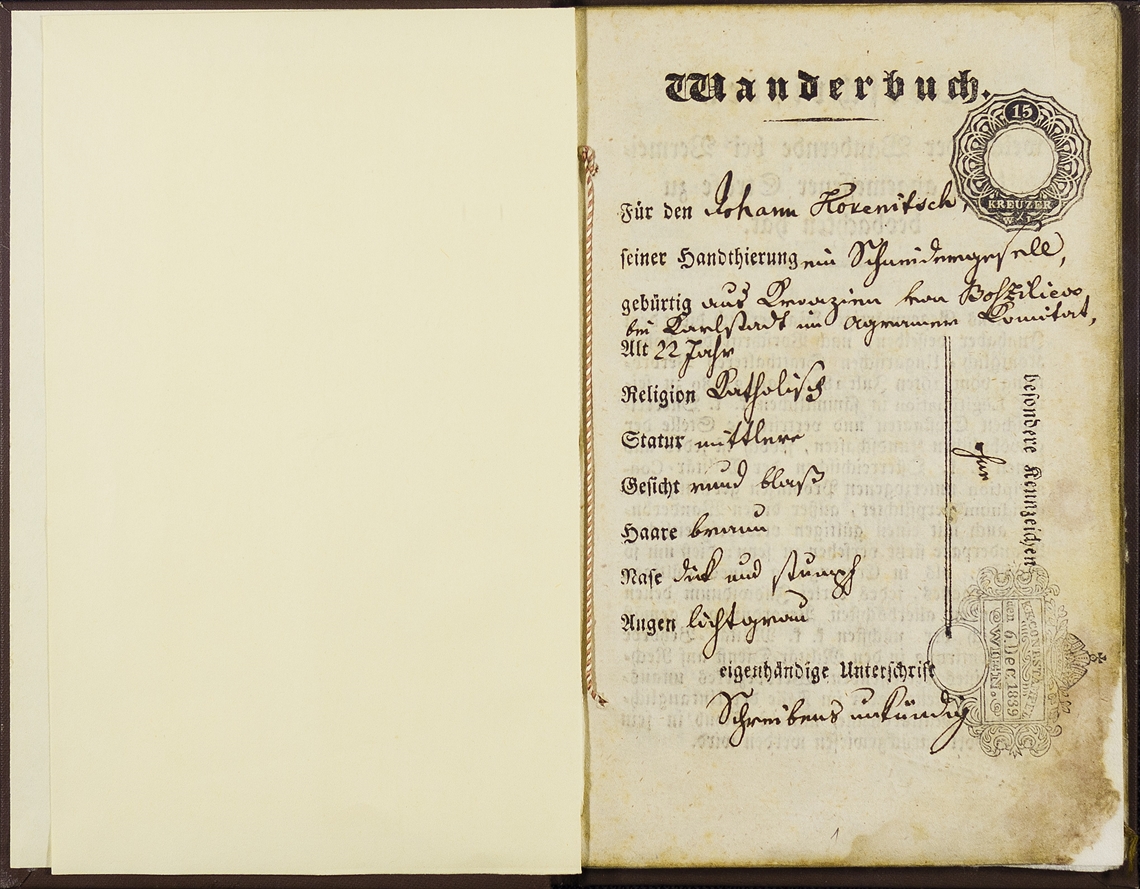 Wanderbuch.
15
KREUZER
W. Z.
Für den Johann Korenitsch,
seiner Handthierung ein Schneidergesell,
gebürtig aus Kroazien von Boszilievo
bei Karlstadt im Agramer Komitat,
Alt 22 Jahr
Religion Katholisch
Statur mittlere
Gesicht rund blaß
Haare braun
Nase dick und stumpf
Augen lichtgrau
besondere Kennzeichen
eigenhändige Unterschrift
Schreibens unkündig
den 6. Dec. 1839
WIEN.
1